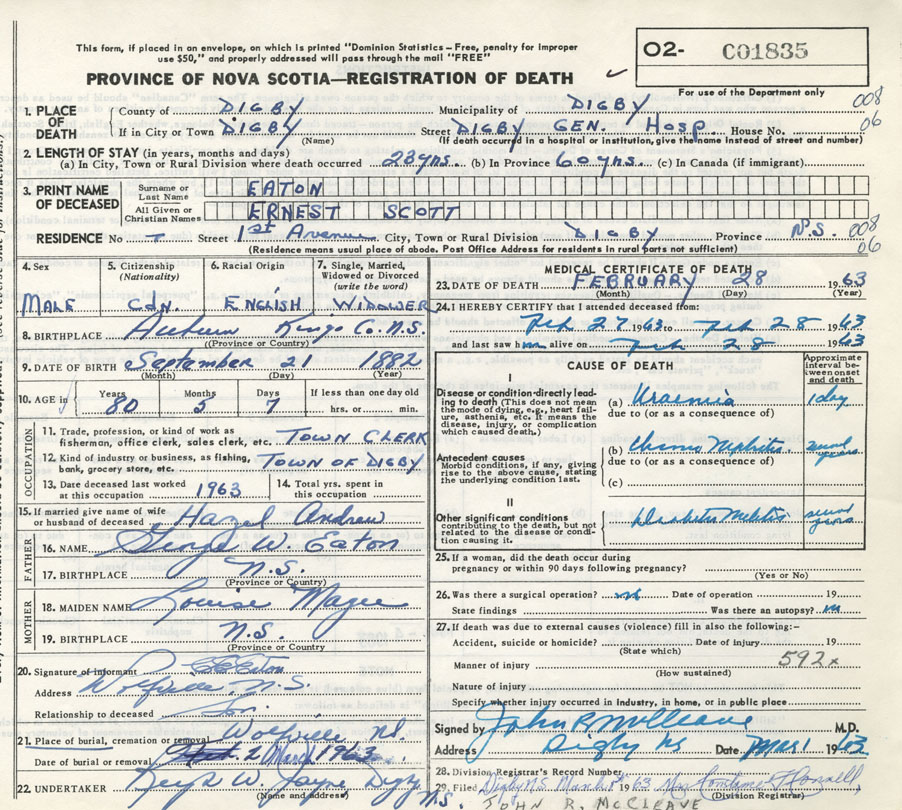 This form, if placed in an envelope, on which is printed "Dominion Statistics – Free, penalty for improper
use $50," and properly addressed will pass through the mail "FREE"
O2- C01835
PROVINCE OF NOVA SCOTIA—REGISTRATION OF DEATH
For use of the Department only
008
06
1. PLACE OF DEATH
County of DIGBY Municipality of DIGBY
If in City or Town DIGBY Street DIGBY GEN. HOSP House No.
(Name) (If death occurred in a hospital or institution, give the name instead of street and number)
2. LENGTH OF STAY (in years, months and days)
(a) In City, Town or Rural Division where death occurred 23 yrs. (b) In Province 60 yrs. (c) In Canada (if immigrant)
3. PRINT NAME OF DECEASED
Surname or Last Name EATON
All Given or Christian Names ERNEST SCOTT
RESIDENCE No Street 1st Avenue City, Town or Rural Division DIGBY Province N.S. 008
06
(Residence means usual place of abode. Post Office Address for residents in rural parts not sufficient)
4. Sex MALE
5. Citizenship (Nationality) CDN.
6. Racial Origin ENGLISH
7. Single, Married, Widowed or Divorced (write the word) WIDOWER
8. BIRTHPLACE Auburn Kings Co. N.S.
(Province or Country)
9. DATE OF BIRTH September 21 1882
(Month) (Day) (Year)
10. AGE in Years 80 Months 5 Days 7 If less than one day old hrs. or min.
OCCUPATION
11. Trade, profession, or kind of work as
fisherman, office clerk, sales clerk, etc. TOWN CLERK
12. Kind of industry or business, as fishing,
bank, grocery store, etc. TOWN OF DIGBY
13. Date deceased last worked
at this occupation 1963
14. Total yrs. spent in
this occupation
15. If married give name of wife
or husband of deceased Hazel Andrew
FATHER
16. NAME George W. Eaton
17. BIRTHPLACE N.S.
(Province or Country)
MOTHER
18. MAIDEN NAME Louise Magee
19. BIRTHPLACE N.S.
(Province or Country
20. Signature of informant Eaton
Address Wolfville, N.S.
Relationship to deceased Son
21. Place of burial, cremation or removal Wolfville NS.
Date of burial or removal March 1963
22. UNDERTAKER W. Jayne Digby N.S.
(Name and address)
MEDICAL CERTIFICATE OF DEATH
23. DATE OF DEATH FEBRUARY 28 1963
(Month) (Day) (Year)
24. I HEREBY CERTIFY that I attended deceased from:
Feb 27 1963 to Feb 28 1963
and last saw him alive on Feb 28 1963
CAUSE OF DEATH
Approximate interval between onset and death
I
Disease or condition directly leading to death (This does not mean
the mode of dying, e.g., heart failure, asthenia, etc. It means the
disease, injury, or complication
which caused death.)
(a) Uraemia 1 day
due to (or as a consequence of)
Antecedent causes
Morbid conditions, if any, giving
rise to the above cause, stating
the underlying condition last.
(b) Chronic Nephritis several years
due to (or as a consequence of)
(c)
II
Other significant conditions
contributing to the death, but not
related to the disease or condition
causing it.
Diabetes Mellitus several years
25. If a woman, did the death occur during
pregnancy or within 90 days following pregnancy?
(Yes or No)
26. Was there a surgical operation? no Date of operation 19
State findings Was there an autopsy? no
27. If death was due to external causes (violence) fill in also the following:–
Accident, suicide or homicide? Date of injury 19
(State which)
Manner of injury 592x
(How sustained)
Nature of injury
Specify whether injury occurred in industry, in home, or in public place
Signed by John R McCleave M.D.
Address Digby NS Date Mar 1 1963
28. Division Registrar's Record Number
29. Filed Digby N.S. March 1963
(Division Registrar)
JOHN R. McCLEAVE